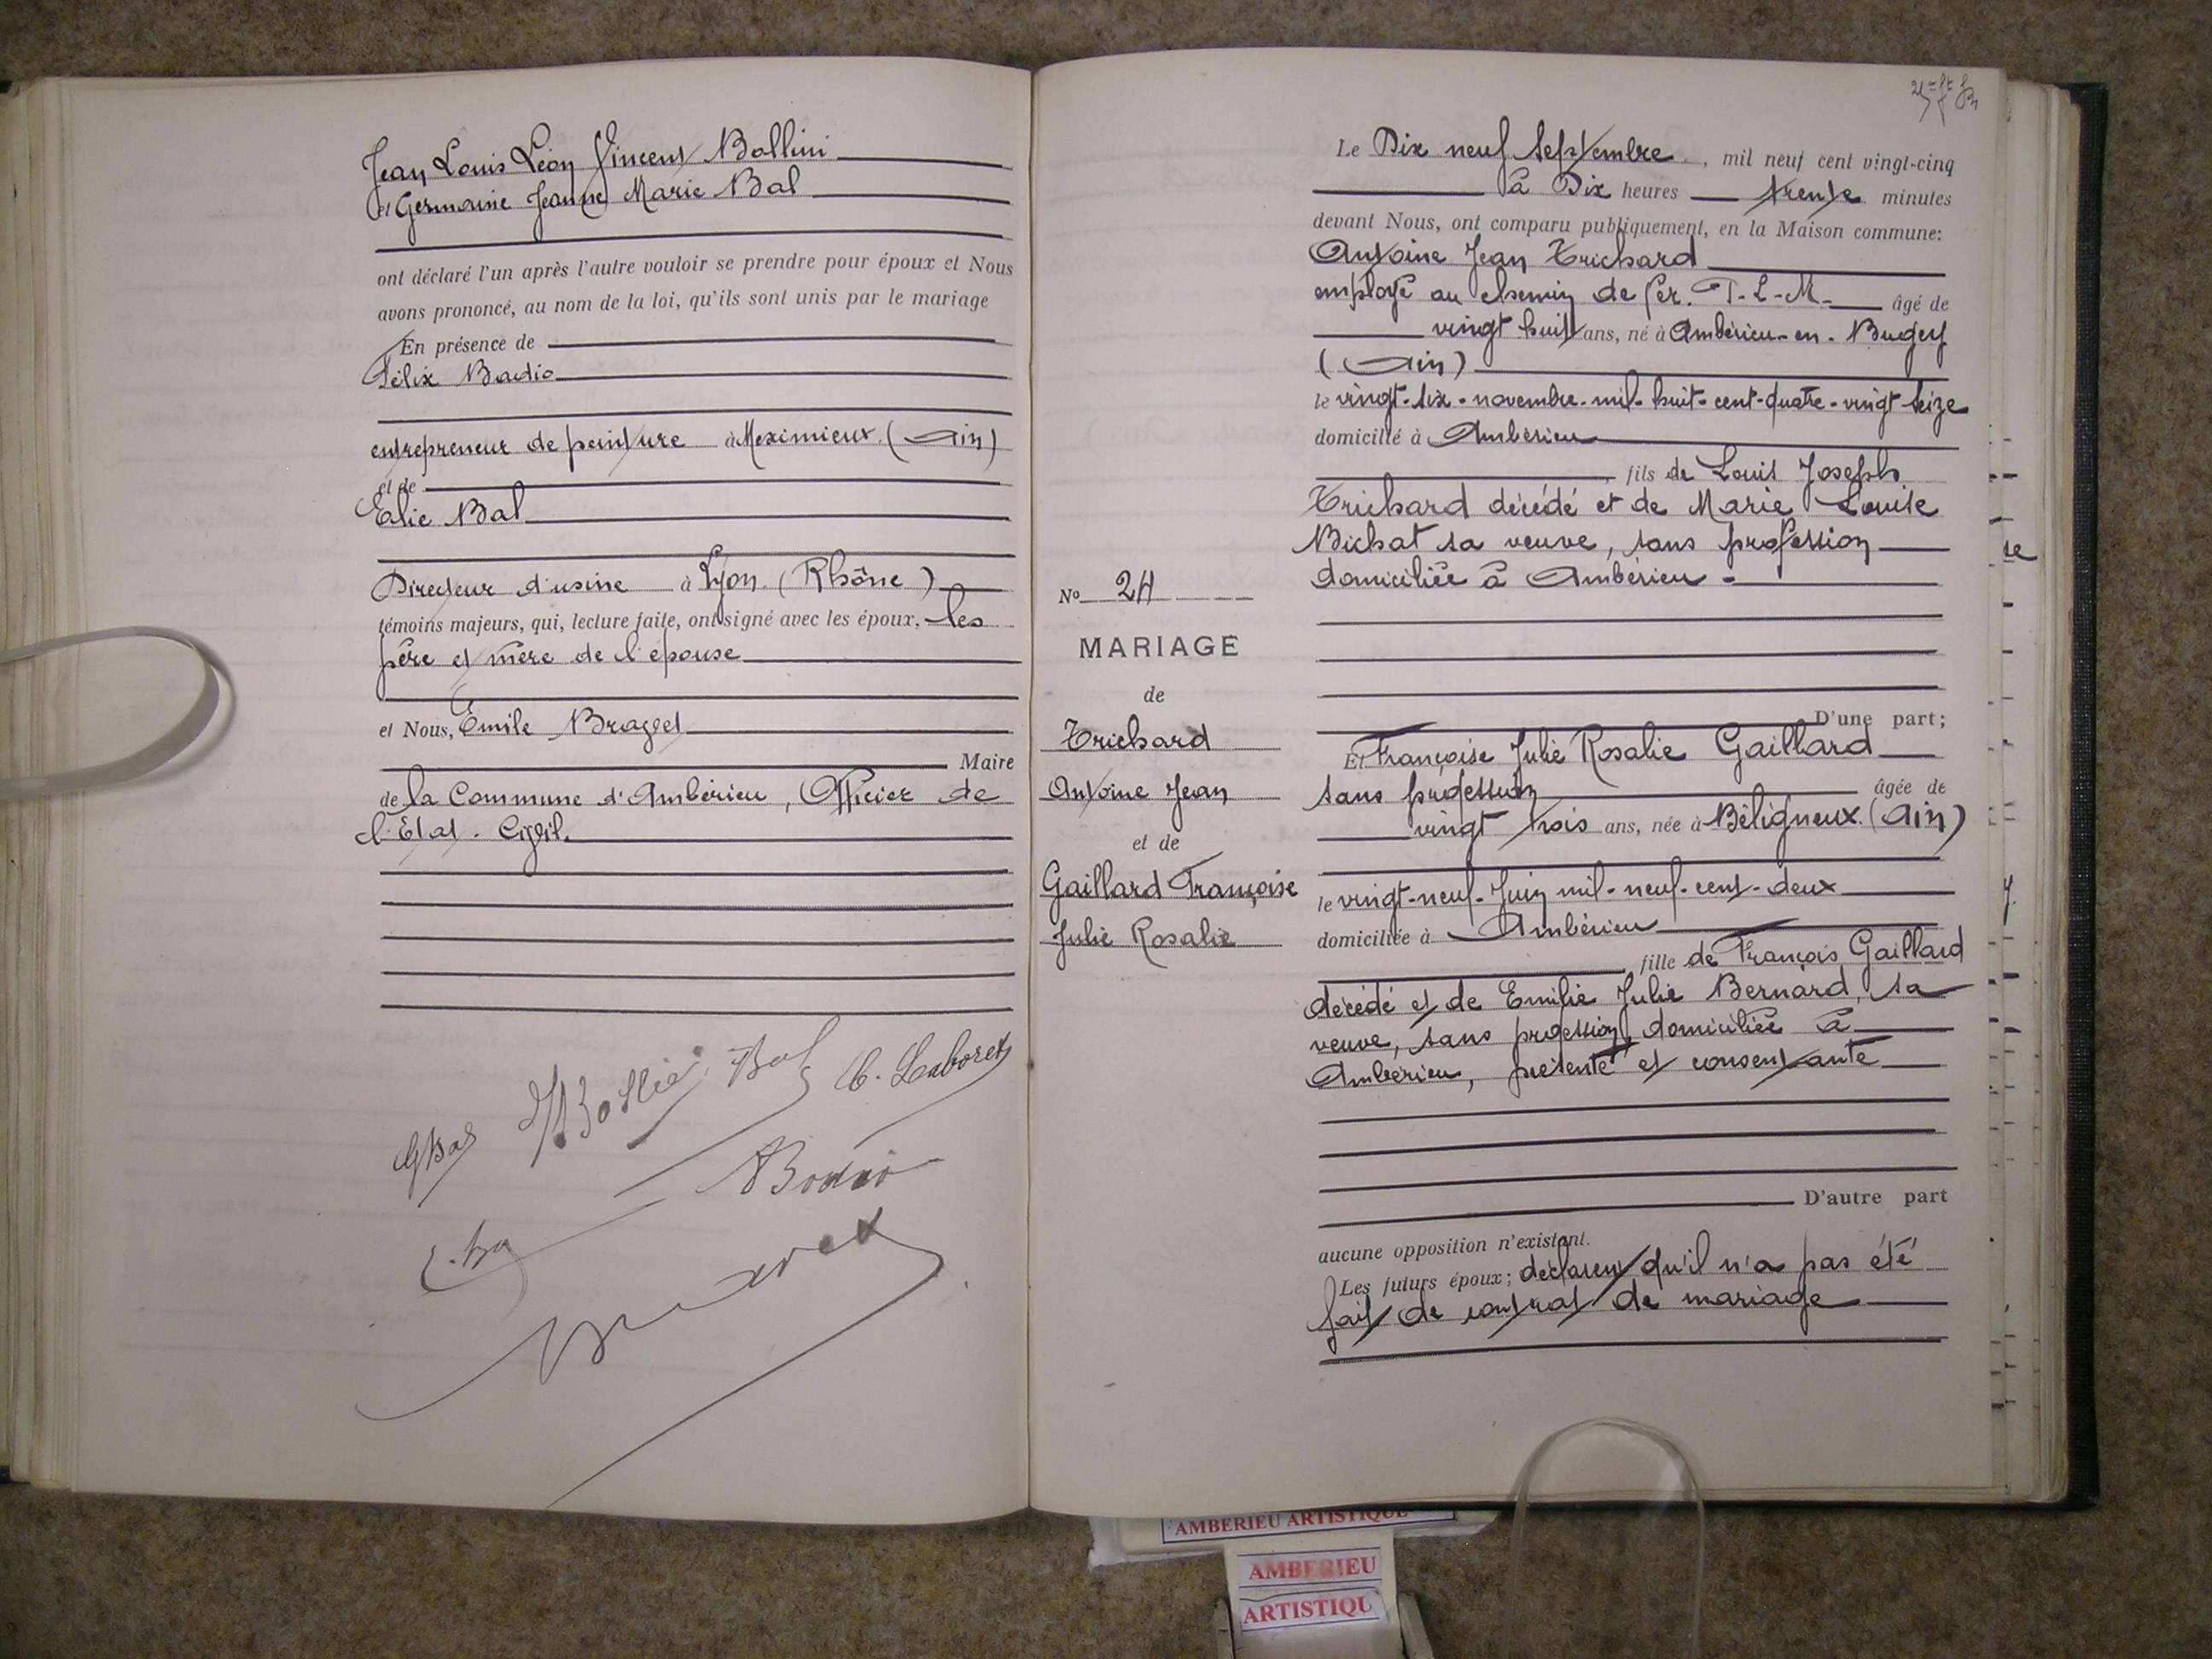 Jean Louis Léon Vincent Bollini
et Germaine Jeanne Marie Bal
ont déclaré l'un après l'autre vouloir se prendre pour époux et Nous
avons prononcé, au nom de la loi, qu'ils sont unis par le mariage
En présence de
Félix Badio
entrepreneur de peinture à Meximieux (Ain)
et de
Elie Bal
Directeur d'usine à Lyon (Rhône)
témoins majeurs, qui, lecture faite, ont signé avec les époux, les
père et mère de l'épouse
et Nous, Emile Bravet
Maire
de la Commune d'Ambérieu, Officier de
l'Etat-Civil.
GBal
Bal
Bravet
Le Dix neuf Septembre, mil neuf cent vingt-cinq
à Dix heures trente minutes
devant Nous, ont comparu publiquement, en la Maison commune:
Antoine Jean Trichard
employé au chemin de fer P-L-M- âgé de
vingt huit ans, né à Ambérieu-en-Bugey
(Ain)
le vingt-six-novembre-mil-huit-cent-quatre-vingt-seize
domicilié à Ambérieu
, fils de Louis Joseph
Trichard décédé et de Marie Louise
Bichat sa veuve, sans profession
domiciliée à Ambérieu -
D'une part;
Et Françoise Julie Rosalie Gaillard
sans profession âgée de
vingt trois ans, née à Béligneux (Ain)
le vingt-neuf-Juin mil-neuf-cent-deux
domiciliée à Ambérieu
fille de François Gaillard
décédé et de Emilie Julie Bernard, sa
veuve, sans profession domiciliée à
Ambérieu, présente et consentante
D'autre part
aucune opposition n'existant.
Les futurs époux; déclarent qu'il n'a pas été
fait de contrat de mariage
No 24
MARIAGE
de
Trichard
Antoine Jean
et de
Gaillard Françoise
Julie Rosalie
AMBERIEU ARTISTIQUE
AMBERIEU
ARTISTIQU